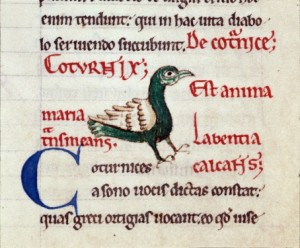 enim tendunt: qui in hac uita diabo
lo seruiendo succubunt. De coturnice;
COTURNIX;
Est anima
maria
transmeans.
Labentia
calcans;
Coturnices
a sono uocis dictas constat;
quas greci ortigias uocant, eo qđ